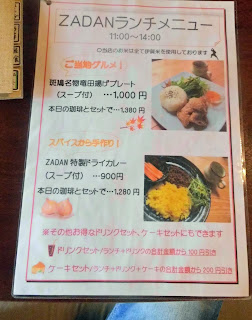 ZADANランチメニュー
11:00～14:00
◎当店のお米は全て伊賀米を使用しております
ご当地グルメ！
斑鳩名物竜田揚げプレート
（スープ付） …1,000円
本日の珈琲とセットで…1,380円
スパイスから手作り！
ZADAN 特製ドライカレー
（スープ付） …900円
本日の珈琲とセットで…1,280円
※その他お得なドリンクセット、ケーキセットにもできます
ドリンクセット/ランチ+ドリンクの合計金額から100円引き
ケーキセット/ランチ+ドリンク+ケーキの合計金額から200円引き